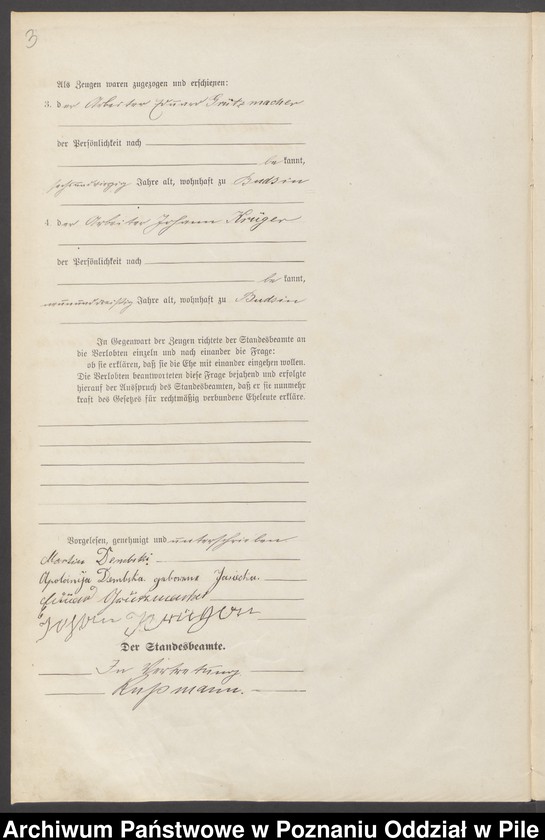 3
Als Zeugen waren zugezogen und erschienen:
3. der Arbeiter Eduard Grützmacher
der Persönlichkeit nach
be kannt,
sechsundvierzig Jahre alt, wohnhaft zu Budsin
4. der Arbeiter Johann Krüger
der Persönlichkeit nach
be kannt,
neununddreißig Jahre alt, wohnhaft zu Budsin
In Gegenwart der Zeugen richtete der Standesbeamte an
die Verlobten einzeln und nach einander die Frage:
ob sie erklären, daß sie die Ehe mit einander eingehen wollen.
Die Verlobten beantworteten diese Frage bejahend und erfolgte
hierauf der Ausspruch des Standesbeamten, daß er sie nunmehr
kraft des Gesetzes für rechtmäßig verbundene Eheleute erkläre.
Vorgelesen, genehmigt und unterschrieben
Martin Dembski
Apolonija Dembska geborene
Eduard Grützmacher
Johann Krüger
Der Standesbeamte.
In Vertretung
Kußmann.
Archiwum Państwowe w Poznaniu Oddział w Pile